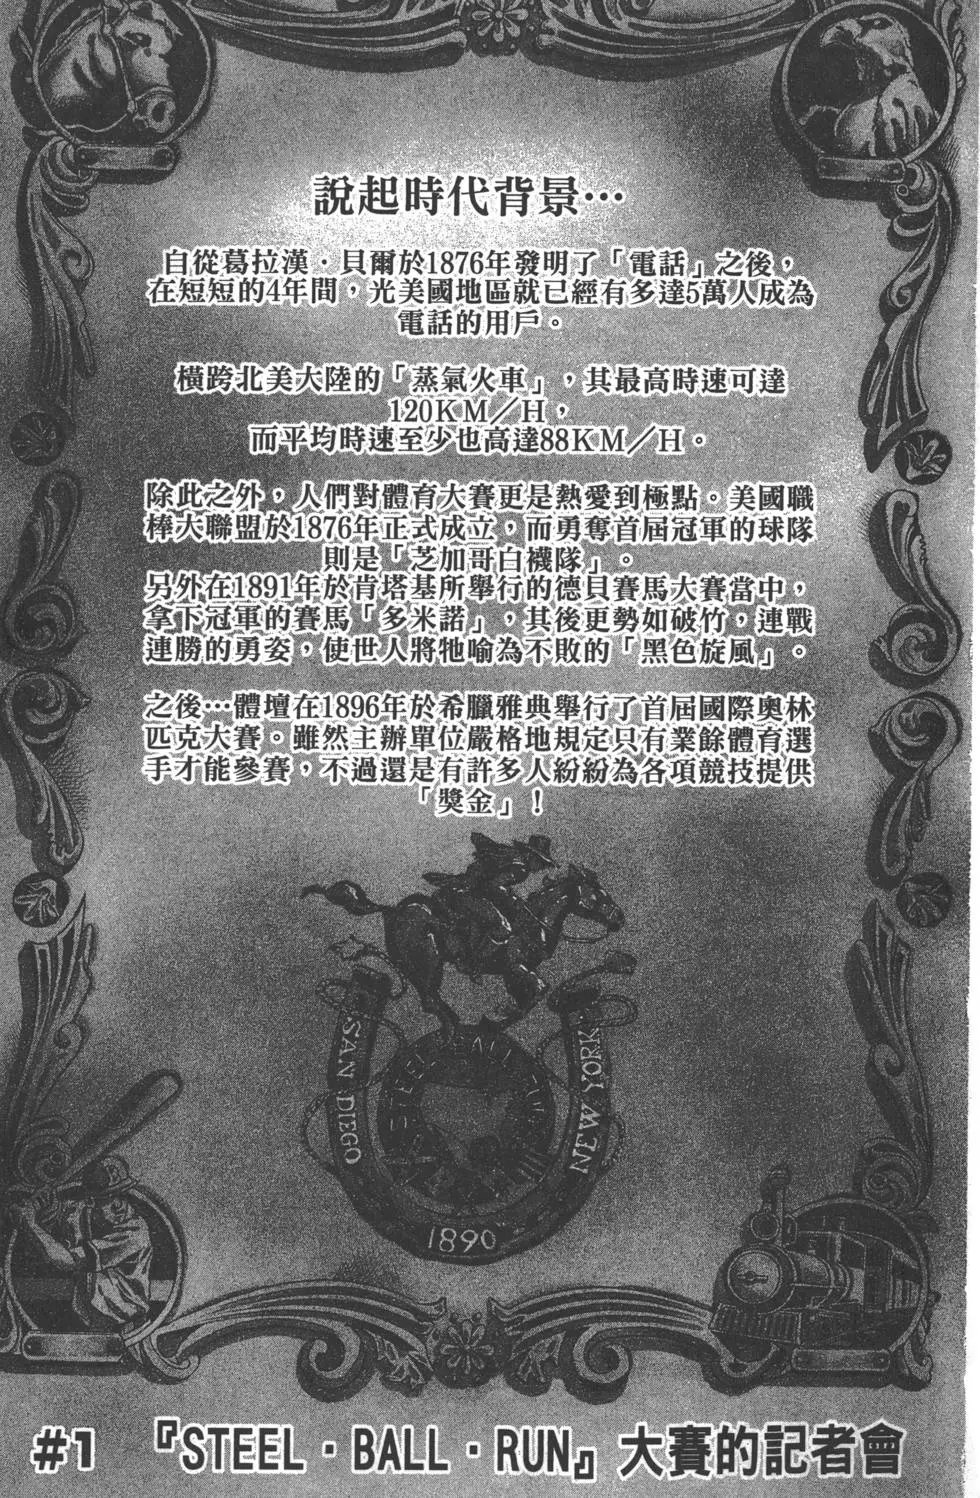 說起時代背景…
自從葛拉漢．貝爾於1876年發明了「電話」之後，
在短短的4年間，光美國地區就已經有多達5萬人成為
電話的用戶。
橫跨北美大陸的「蒸氣火車」，其最高時速可達
120KM／H，
而平均時速至少也高達88KM／H。
除此之外，人們對體育大賽更是熱愛到極點。美國職
棒大聯盟於1876年正式成立，而勇奪首屆冠軍的球隊
則是「芝加哥白襪隊」。
另外在1891年於肯塔基所舉行的德貝賽馬大賽當中，
拿下冠軍的賽馬「多米諾」，其後更勢如破竹，連戰
連勝的勇姿，使世人將牠喻為不敗的「黑色旋風」。
之後…體壇在1896年於希臘雅典舉行了首屆國際奧林
匹克大賽。雖然主辦單位嚴格地規定只有業餘體育選
手才能參賽，不過還是有許多人紛紛為各項競技提供
「獎金」！
SAN DIEGO
STEEL BALL RUN
NEW YORK
1890
#1 『STEEL．BALL．RUN』大賽的記者會